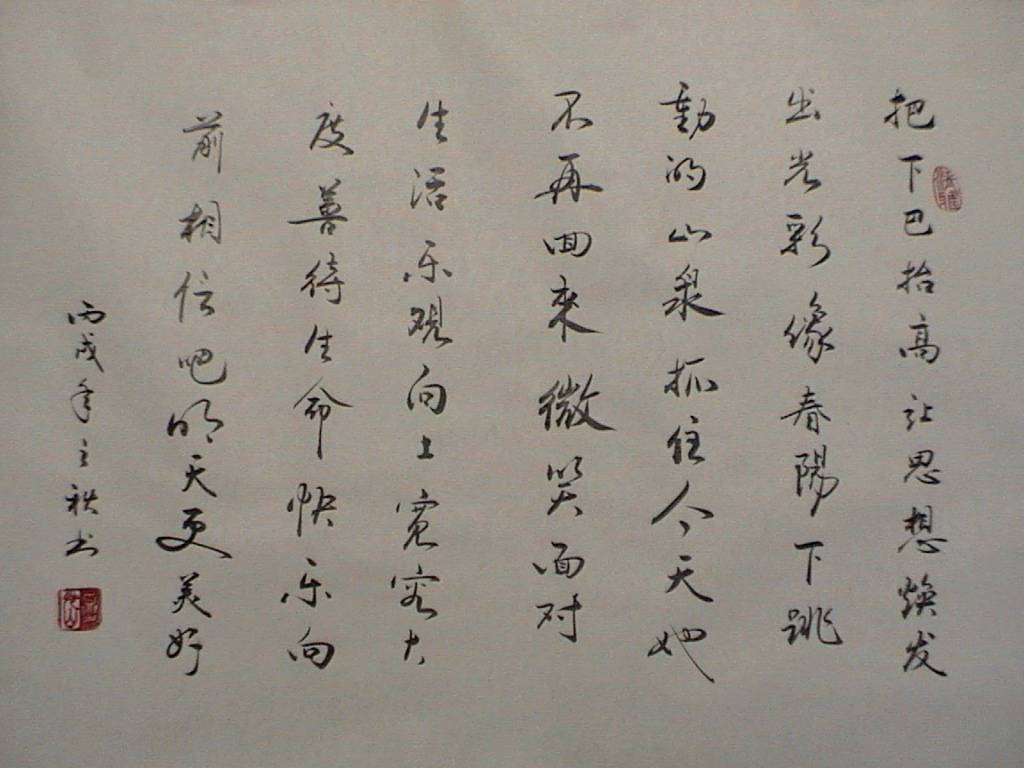 把下巴抬高让思想焕发
出光彩像春陽下跳
動的山泉抓住今天她
不再回来微笑面对
生活乐观向上宽容大
度善待生命快乐向
前相信吧明天更美好
丙戌年之秋书